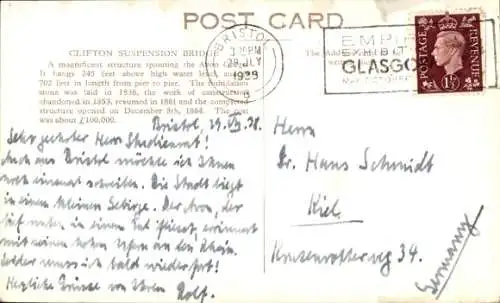 POST CARD
CLIFTON SUSPENSION BRIDGE
A magnificent structure spanning the Avon
It hangs 245 feet above high water level, and
702 feet in length from pier to pier. The foundation
stone was laid in 1836, the work of construction
abandoned in 1853, resumed in 1861 and the completed
structure opened on December 8th, 1864. The cost
was about £100,000.
The Add
BRISTOL
3 PM
29 JLY
1938
EMPI
EXHIBIT
GLASGO
MAY-OCTOBER
POSTAGE
REVENUE
1½D
Bristol, 29. VII. 38.
Sehr geehrter Herr Studienrat!
Auch aus Bristol möchte ich Ihnen
noch einmal schreiben. Die Stadt liegt
in einem kleinen Gebirge. Der Avon, der
tief unten in einem Tal fliesst, erinnert
mit seinen hohen Ufern an den Rhein.
Leider muss ich bald wieder fort!
Herzliche Grüsse von Ihrem
Rolf.
Herrn
Dr. Hans Schmidt
Kiel
34.
Germany